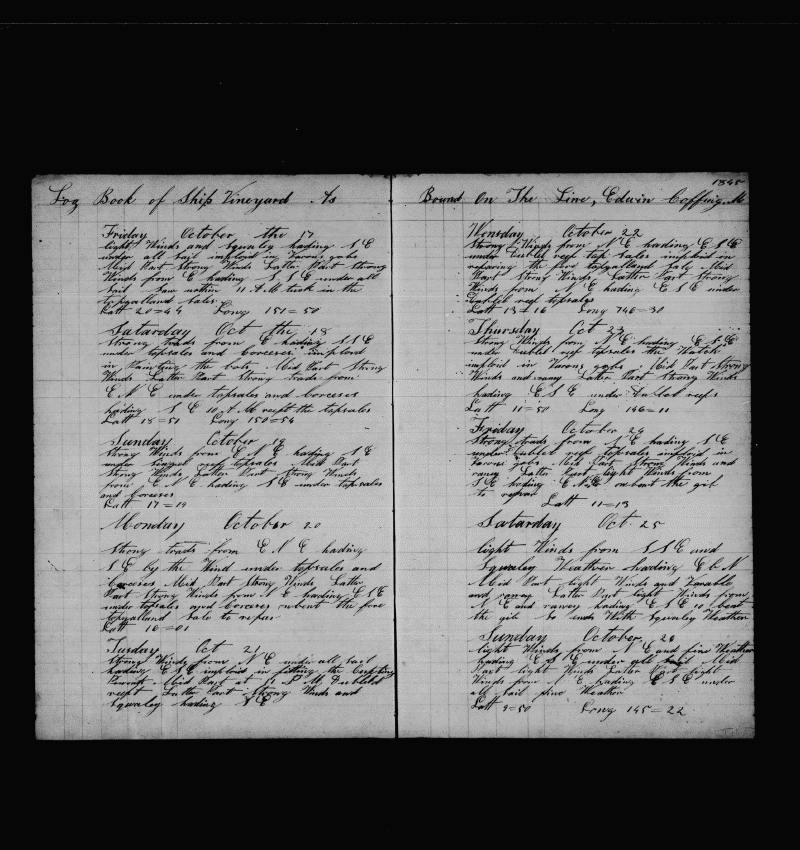 Log Book of Ship Vineyard As
Friday October the 17
light Winds and Squaley hading S E
under all sail imploid in Varous gobs
Mid Part Strong Winds Latter Part Strong
Winds from E hading S S E under all
sail Saw nothin 11 A M tuck in the
topgalland sales
Latt 20=44 Long 151=50
Satarday Oct the 18
Strong trads from E hading S S E
under topsales and corceses imploid
in Painting the bots Mid Part Strong
Winds Latter Part Strong trads from
E N E under topsales and corceses
hading S E 11 A M reeft the topsales
Latt 18=51 Long 150=54
Sunday October 19
Strong Winds from E N E hading S E
under topsales Mid Part
Strong Winds Latter Part Strong Winds
from E N E hading S E under topsales
and corceses
Latt 17=19
Monday October 20
Strong trads from E N E hading
S E by the Wind under topsales and
corceses Mid Part Strong Winds Latter
Part Strong Winds from N E hading E S E
under topsales and corceses unbent the fore
topgalland sale to repar
Latt 16=01
Tusday Oct 21
Strong Winds from N E under all sail
hading E S E imploid in fitting the
Mid Part at 11 P M Dubleld
reeft Latter Part Strong Winds and
Squaley hading S E
1845
Bound On The Line, Edwin Coffing, M
Wensday October 22
Strong Winds from N E hading E S E
under dubbel reef top sales imploid in
reparing the fore topgalland sale Mid
Part Strong Winds Latter Part Strong
Winds from N E hading E S E under
Dubbil reef topsales
Latt 13=16 Long 146=30
Thursday Oct 23
Strong Winds from N E hading E S E
under dubbel reef topsales the Watch
imploid in Varous gobs Mid Part Strong
Winds and raney Latter Part Strong Winds
hading E S E under reefs
Latt 11=50 Long 146=11
Friday October 24
Strong trads from N E hading S E
under dubbel reef topsales imploid in
Varous jobs Mid Part Strong Winds and
raney Latter Part light Winds from
S E hading E N E unbent the gib
to repar
Latt 11=13
Satarday Oct 25
light Winds from S S E and
Squaley Weather hading E b N
Mid Part light Winds and Varable
and raney Latter Part light Winds from
N E and raney hading E S E bent
the gib So ends With Squaley Weather
Sunday October, 26
light Winds from N E and fine Weather
hading E S E under all sail Mid
Part light Winds Latter Part light
Winds from N E hading E S E under
all sail fine Weather
Latt 9=50 Long 145=22